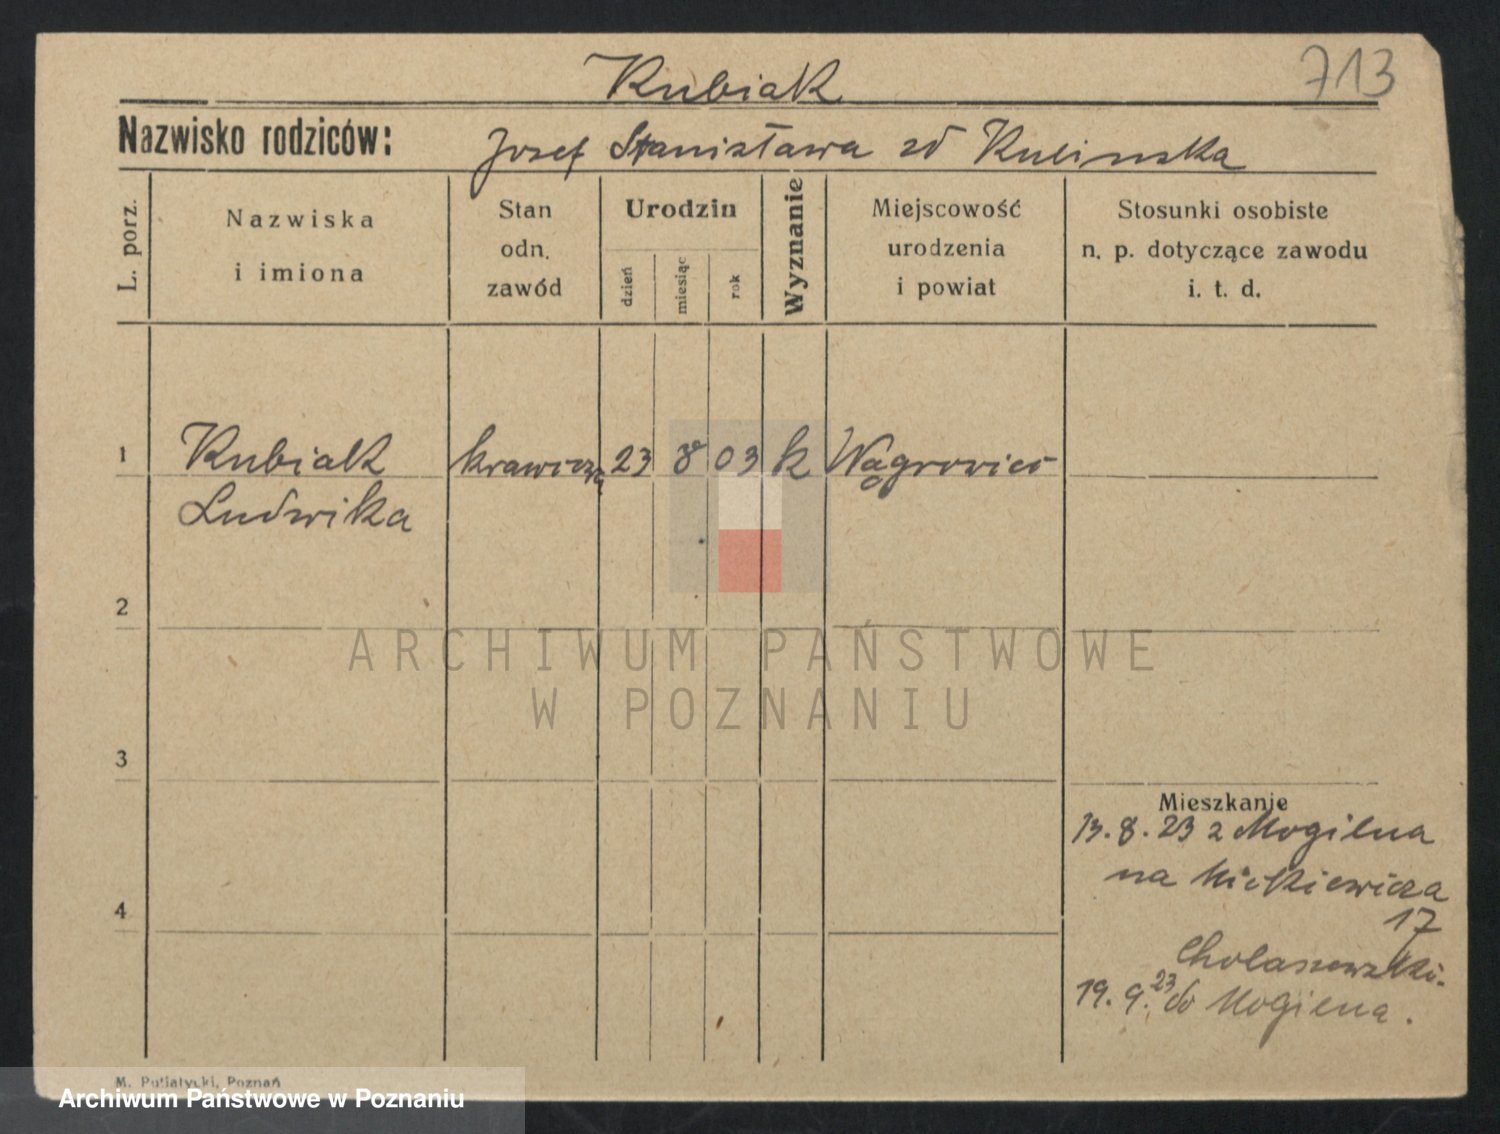 713
Kubiak
Nazwisko rodziców: Josef Stanisława zd Kulinska
L. porz.
Nazwiska
i imiona
Stan
odn.
zawód
Urodzin
dzień
miesiąc
rok
Wyznanie
Miejscowość
urodzenia
i powiat
Stosunki osobiste
n. p. dotyczące zawodu
i. t. d.
1 Kubiak krawiczka 23 8 03 k Wągrowiec
Ludwika
2
ARCHIWUM PAŃSTWOWE
W POZNANIU
3
Mieszkanie
13.8.23 z Mogilna
na Mickiewicza
17
4
19.9.23 do Mogilna.
M. Putiatycki, Poznań
Archiwum Państwowe w Poznaniu